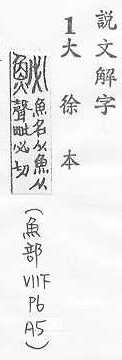 説文解字
1大徐本
鮅 魚名从魚必
聲毗必切
(魚部 VII下 P6 A5)